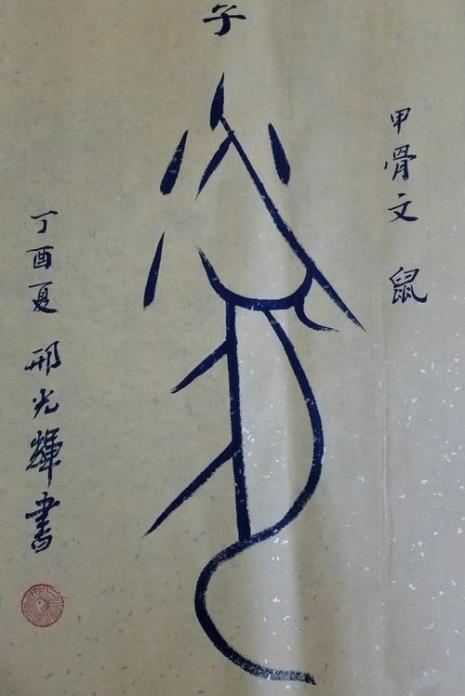 子
甲骨文 鼠
丁酉夏 邢光輝書